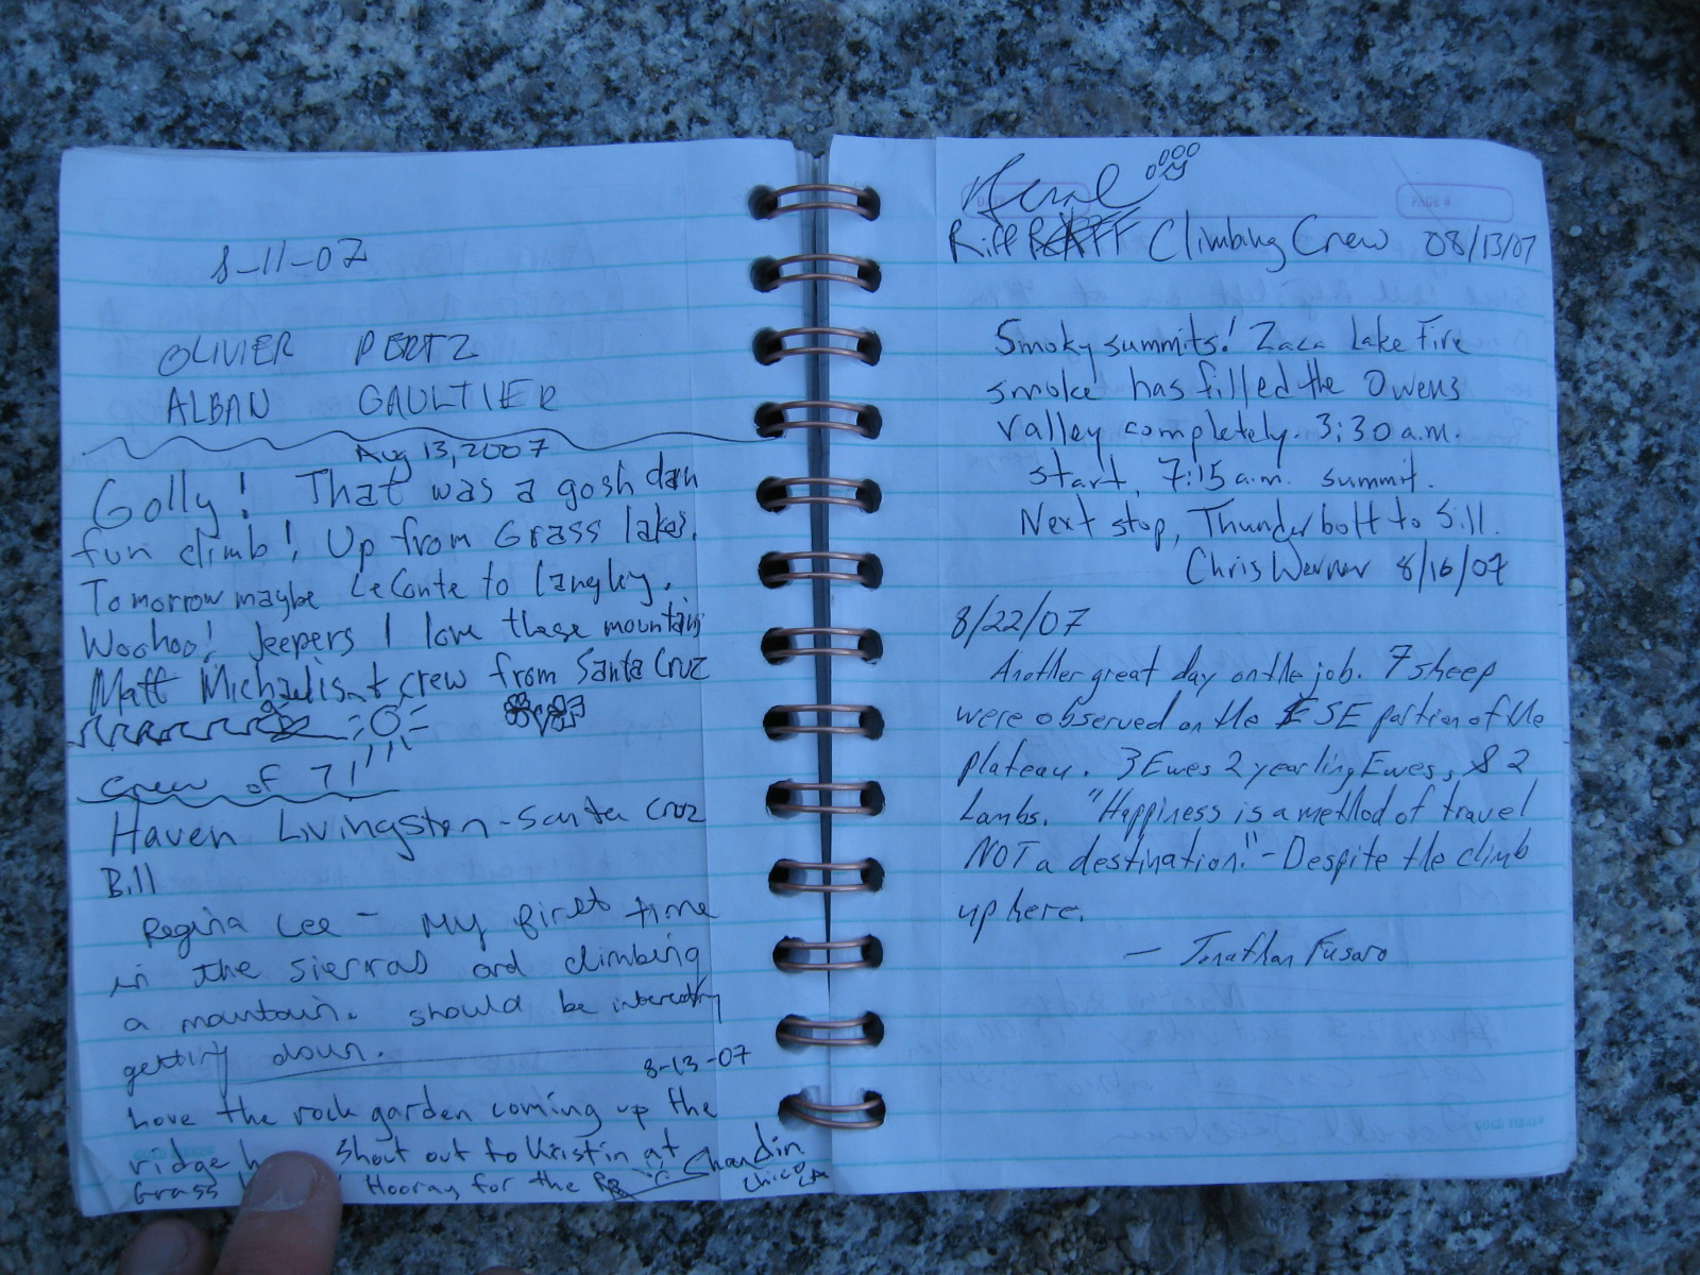 8-11-07
OLIVIER PERTZ
ALBAN GAULTIER
Aug 13, 2007
Golly! That was a gosh darn
fun climb! Up from Grass lakes.
Tomorrow maybe LeConte to Langley.
Woohoo! Jeepers I love these mountains
Matt Michaelis + crew from Santa Cruz
Crew of 7!
Haven Livingston - Santa Cruz
Bill
Regina Lee - My first time
in the sierras and climbing
a mountain. should be interesting
getting down.
8-13-07
Love the rock garden coming up the
ridge Shout out to Kristin at
Grass Hooray for the
Shandin
Chico CA
PAGE #
Riff RAFF Climbing Crew 08/13/07
Smoky summits! Zaca Lake Fire
smoke has filled the Owens
Valley completely. 3:30 a.m.
start, 7:15 a.m. summit.
Next stop, Thunderbolt to Sill.
Chris Werner 8/16/07
8/22/07
Another great day on the job. 7 sheep
were observed on the ESE portion of the
plateau. 3 Ewes 2 yearling Ewes, & 2
Lambs. "Happiness is a method of travel
NOT a destination." - Despite the climb
up here.
— Jonathan Fusaro